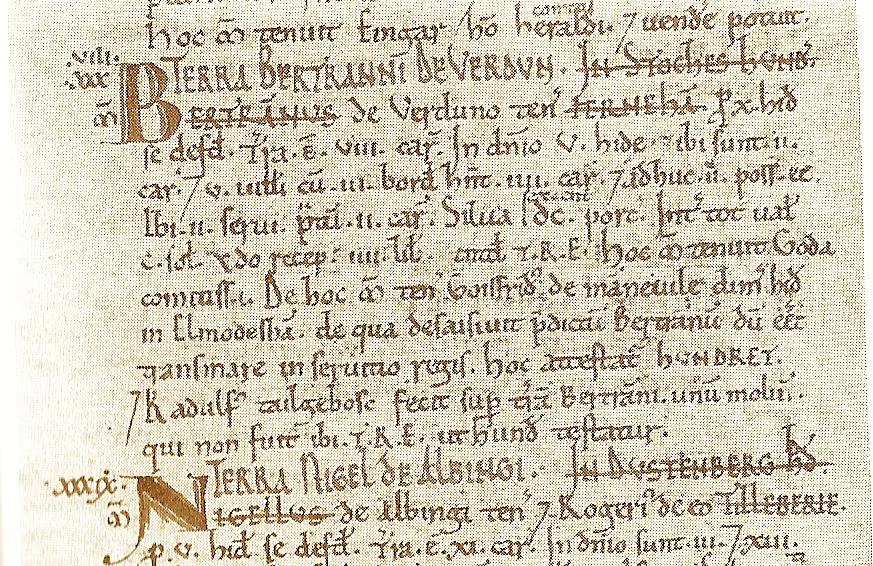 hoc m̃ tenuit Eingar hõ heraldi. ⁊ uende potuit.
.viii. TERRA BERTRANNI DE VERDVN. IN STOCHES HVND.
xxx
m̃ BERTRANUS de Verduno teñ FERNEHÃ. ꝑ x. hid̃
se defd̃. Tr̃a. ẽ. viii. car̃. In dñio v. hide. ⁊ ibi sunt. ii.
car̃. ⁊ v. uilli cũ. iii. bord̃ hñt. iiii. car̃. ⁊ adhuc. ii. poss̃ ee.
Ibi. ii. serui. p̃tũ. ii. car̃. Silua dc. porc̃. Int̃ tot ual̃
c. sol̃. Q̃do recep̃: iiii. lib̃. T.R.E. hoc m̃ tenuit Goda
comitiss̃. De hoc m̃ teñ Goisfrid' de maneuile dim̃ hid̃
in Elmodeshã. de qua desaisiuit p̃dictũ Bertranũ dũ eẽt
transmare in seruitio regis. hoc attestat̃ HUNDRET.
⁊ Radulf' tailgebosc fecit sup̃ tr̃ã Bertrãni. unũ molin̄.
qui non fuit ibi. T.R.E. ut hund̃ testatur.
xxxix. TERRA NIGEL DE ALBINGI. IN DVSTENBERG HD.
m̃ NIGELLUS de Albingi teñ. ⁊ Roger' de eo TILLEBERIE.
p. v. hid̃ se defd̃. Tr̃a. ẽ. xi. car̃. In dñio sunt. iii. ⁊ xiii.